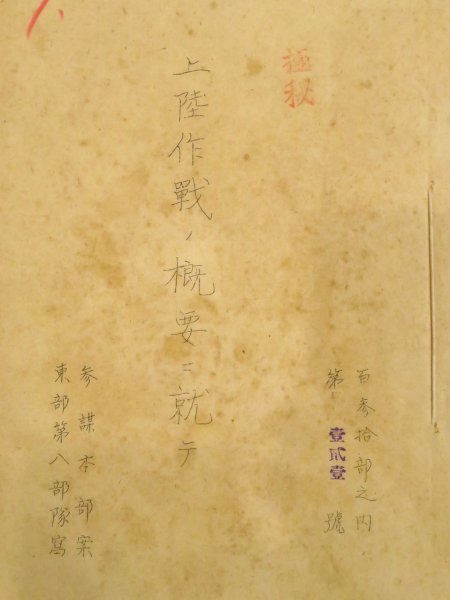 極秘
百参拾部之内
第壹貳壹號
上陸作戰ノ概要ニ就テ
参謀本部案
東部第八部隊寫